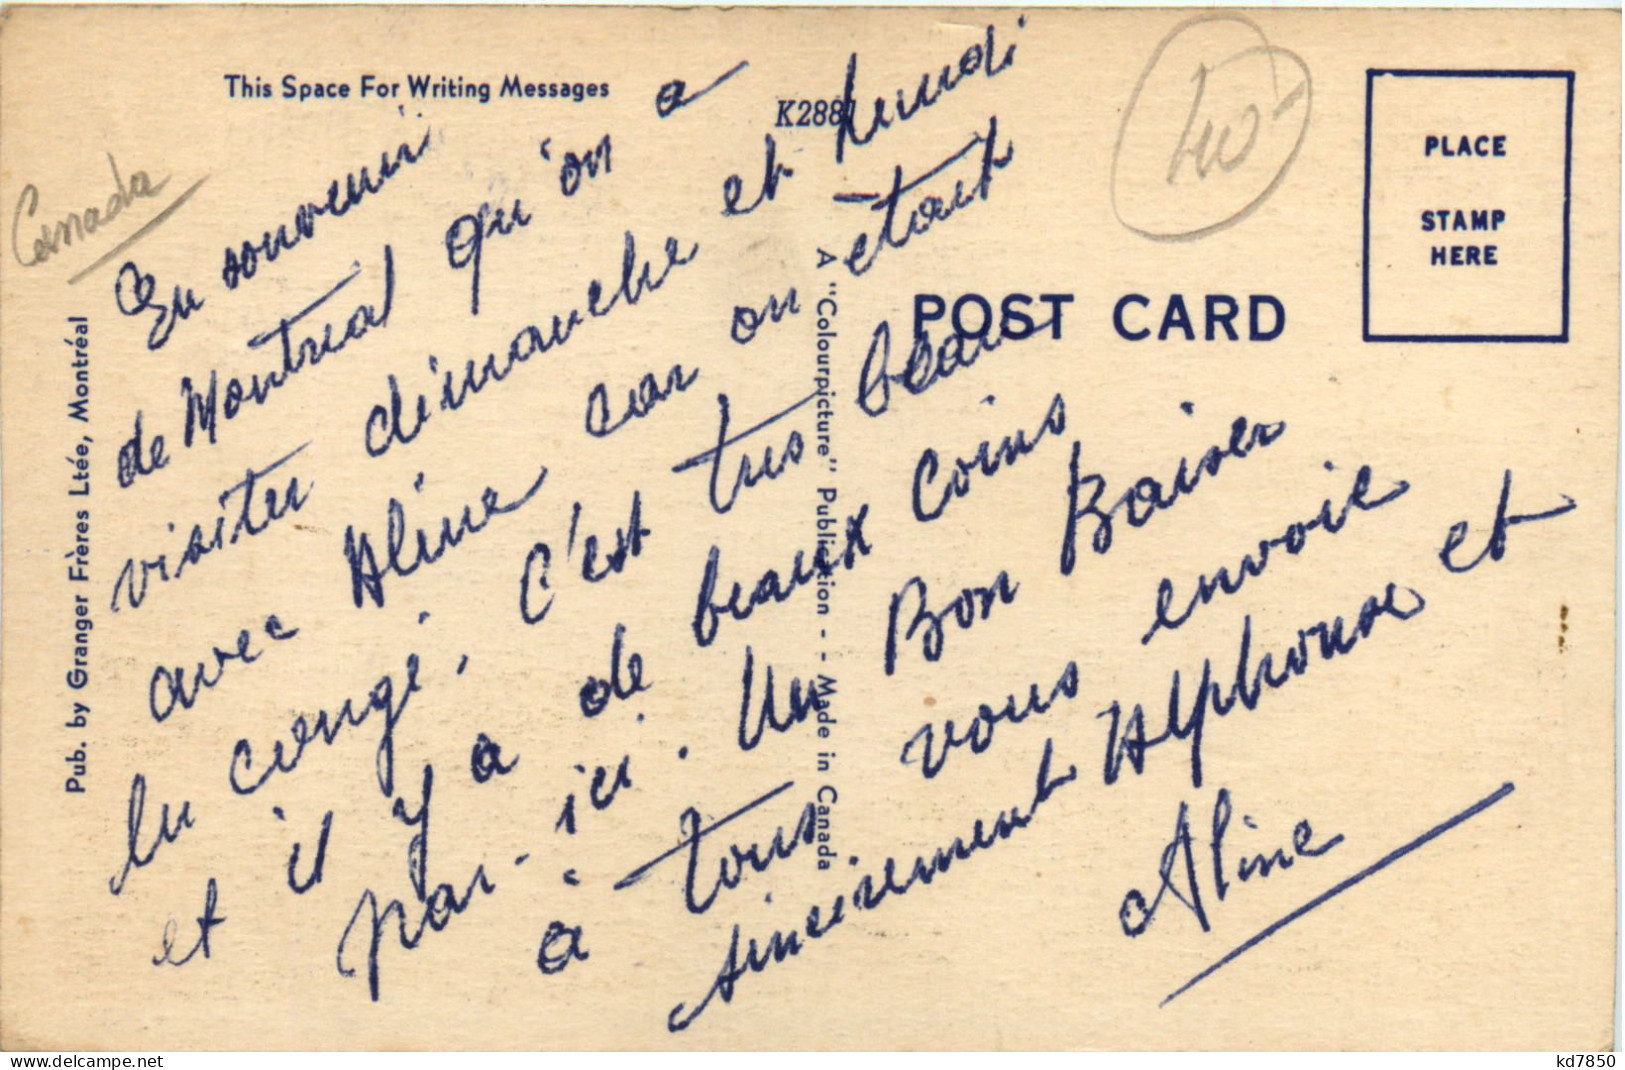 This Space For Writing Messages
K2887
Canada
40-
PLACE
STAMP
HERE
POST CARD
Pub. by Granger Frères Ltée, Montréal
A "Colourpicture" Publication - Made in Canada
En souvenir
de Montreal qu'on a
visiter dimanche et lundi
avec Aline car on etait
en congé. C'est tres beau
et il y a de beaux coins
par-ici. Un Bon Baiser
à tous vous envoie
sincirement Alphonse et
Aline
www.delcampe.net
kd7850